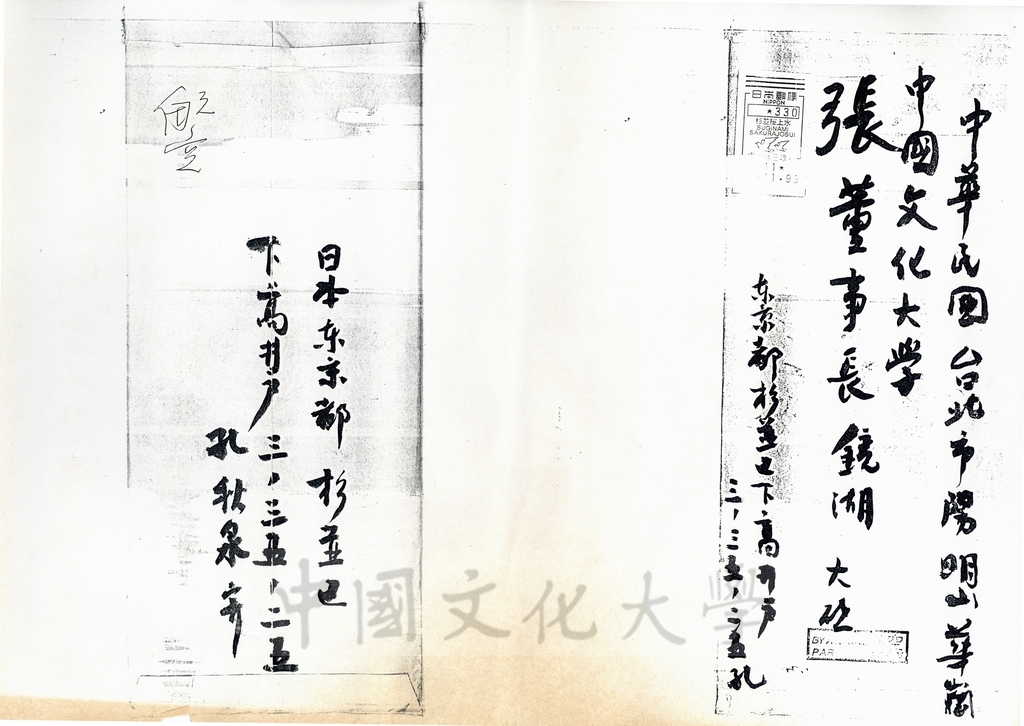 中華民国 台北市陽明山華崗
中國文化大学
張董事長鏡湖 大啟
日本郵便
NIPPON
330
杉並桜上水
SUGINAMI
SAKURAJOSUI
东京都杉並区下高井戸
三,三五,二五 孔
PAR
日本东京都 杉並区
下高井戸 三,三五,二五
孔秋泉寄
中國文化大學